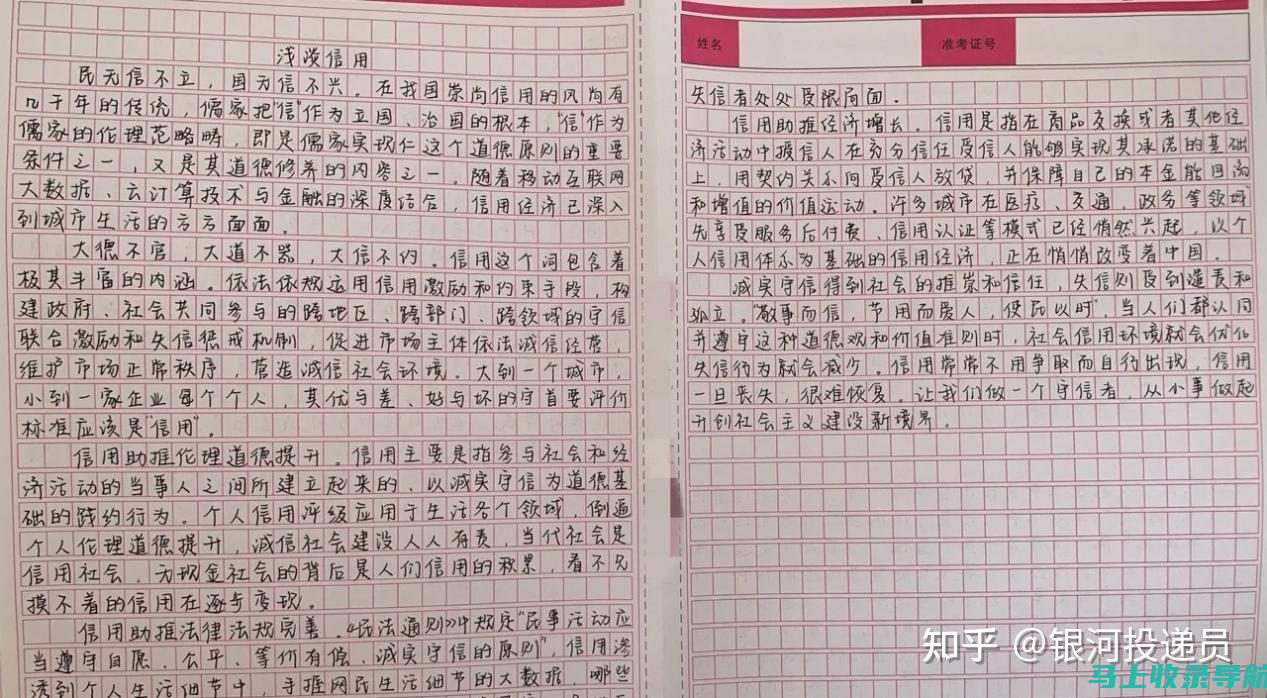 浅谈信用
民无信不立，国无信不兴。在我国崇尚信用的风尚有
几千年的传统，儒家把"信"作为立国、治国的根本，"信"作为
儒家的伦理范略畴，即是儒家实现仁这个道德原则的重要
条件之一，又是其道德修养的内容之一。随着移动互联网
大数据、云计算技术与金融的深度结合，信用经济已深入
到城市生活的方方面面。
大德不官，大道不器，大信不约。信用这个词包含着
极其丰富的内涵。依法依规运用信用激励和约束手段，构
建政府、社会共同参与的跨地区、跨部门、跨领域的守信
联合激励和失信惩戒机制，促进市场主体依法诚信经营，
维护市场正常秩序，营造诚信社会环境。大到一个城市，
小到一家企业每个个人，其优与差、好与坏的守首要评价
标准应该是"信用"。
信用助推伦理道德提升。信用主要是指参与社会和经
济活动的当事人之间所建立起来的、以诚实守信为道德基
础的践约行为。个人信用评级应用于生活各个领域，倒逼
个人伦理道德提升，诚信社会建设人人有责，当代社会是
信用社会，无现金社会的背后是人们信用的积累，看不见
摸不着的信用在逐步变现。
信用助推法律法规完善。《民法通则》中规定"民事活动应
当遵守自愿、公平、等价有偿、诚实守信的原则"，信用渗
透到个人生活细节中，手握网民生活细节的大数据，哪些
姓名
准考证号
失信者处处受限局面。
信用助推经济增长。信用是指在商品交换或者其他经
济活动中授信人在充分信任受信人能够实现其承诺的基础
上，用契约关系向受信人放贷，并保障自己的本金能回流
和增值的价值运动。许多城市在医疗、交通，政务等领域
先享受服务后付费、信用认证等模式已经悄然兴起，以个
人信用体系为基础的信用经济，正在悄悄改变着中国。
诚实守信得到社会的推崇和信任，失信则受到谴责和
孤立。"敬事而信，节用而爱人，使民以时"，当人们都认同
并遵守这种道德观和价值准则时，社会信用环境就会优化
失信行为就会减少。信用常常不用争取而自行出现，信用
一旦丧失，很难恢复。让我们做一个守信者，从小事做起
开创社会主义建设新境界。
知乎 @银河投递员
马上收录导航